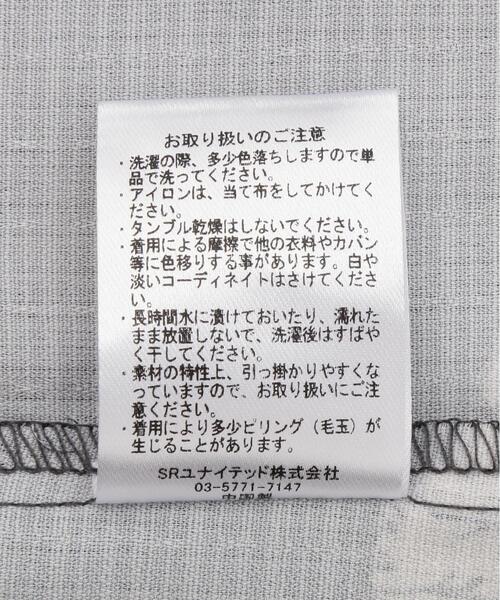 お取り扱いのご注意
・洗濯の際、多少色落ちしますので単
品で洗ってください。
・アイロンは、当て布をしてかけてく
ださい。
・タンブル乾燥はしないでください。
・着用による摩擦で他の衣料やカバン
等に色移りする事があります。白や
淡いコーディネイトはさけてくださ
い。
・長時間水に漬けておいたり、濡れた
まま放置しないで、洗濯後はすばや
く干してください。
・素材の特性上、引っ掛かりやすくな
っていますので、お取り扱いにご注
意ください。
・着用により多少ピリング(毛玉)が
生じることがあります。
SRユナイテッド株式会社
03-5771-7147
中国製